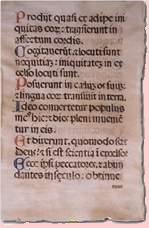 Produt quasi ex adipe ini
quitas eoꝝ: transierunt in
affectum cordis.
Cogitaverūt ⁊ locuti sunt
nequitiā: iniquitatē in ex
celso locuti sunt.
Posuerunt in celū os suū:
⁊ lingua eoꝝ transivit in terra.
Ideo convertetur populus
me⁹ hic: ⁊ dies pleni invenie
tur in eis.
Et dixerunt, quomodo scit
de⁹: ⁊ si est scientia ī excelso
Ecce ipsi peccatores, ⁊ abun
dantes in seculo: obtinue